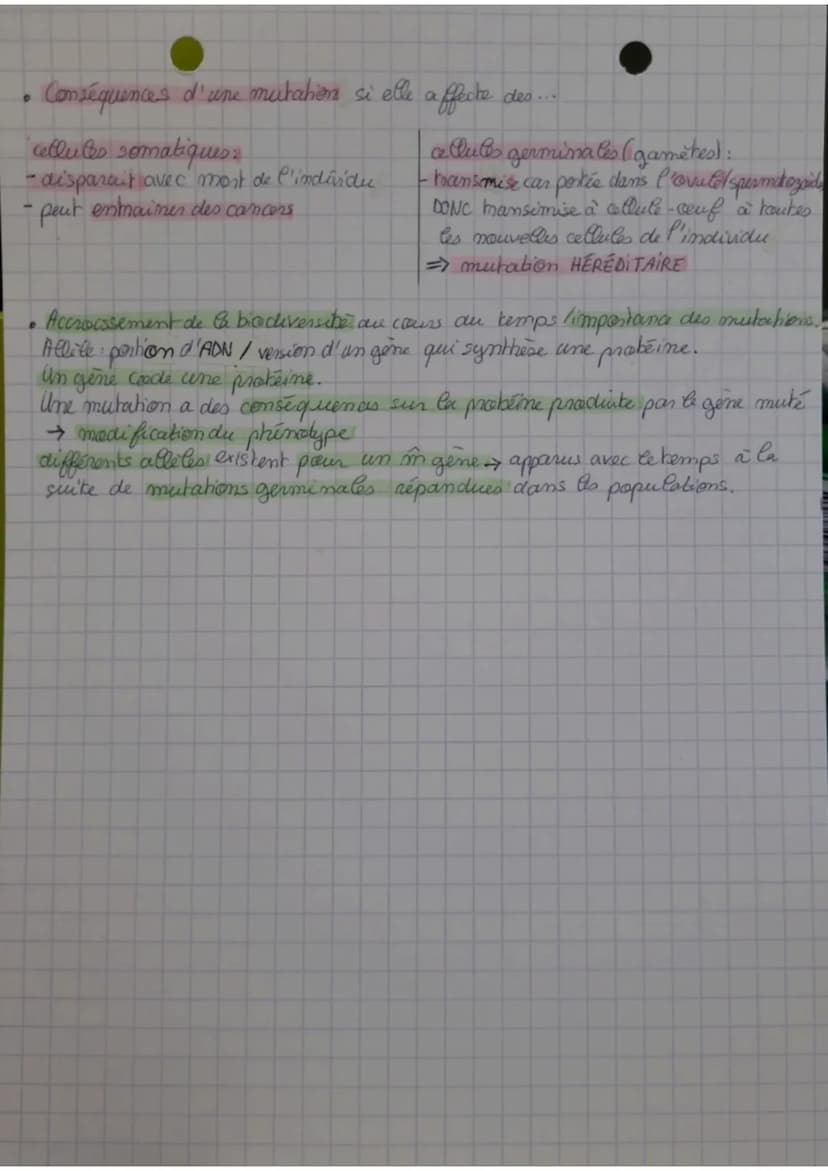 • Conséquences d'une mutation si elle affecte des...
cellules somatiques:
- disparait avec mort de l'individu
- peut entrainer des cancers
cellules germinales (gamètes):
- transmise car portée dans l'ovule/spermatozoïde
DONC transmise à cellule-œuf à toutes
les nouvelles cellules de l'individu
⇒ mutation HÉRÉDITAIRE
• Accroissement de la biodiversité au cours du temps / importance des mutations.
Allèle : portion d'ADN / version d'un gène qui synthèse une protéine.
Un gène code une protéine.
Une mutation a des conséquences sur la protéine produite par le gène muté
→ modification du phénotype
différents allèles existent pour un m̂ gène → apparus avec le temps à la
suite de mutations germinales répandues dans les populations.